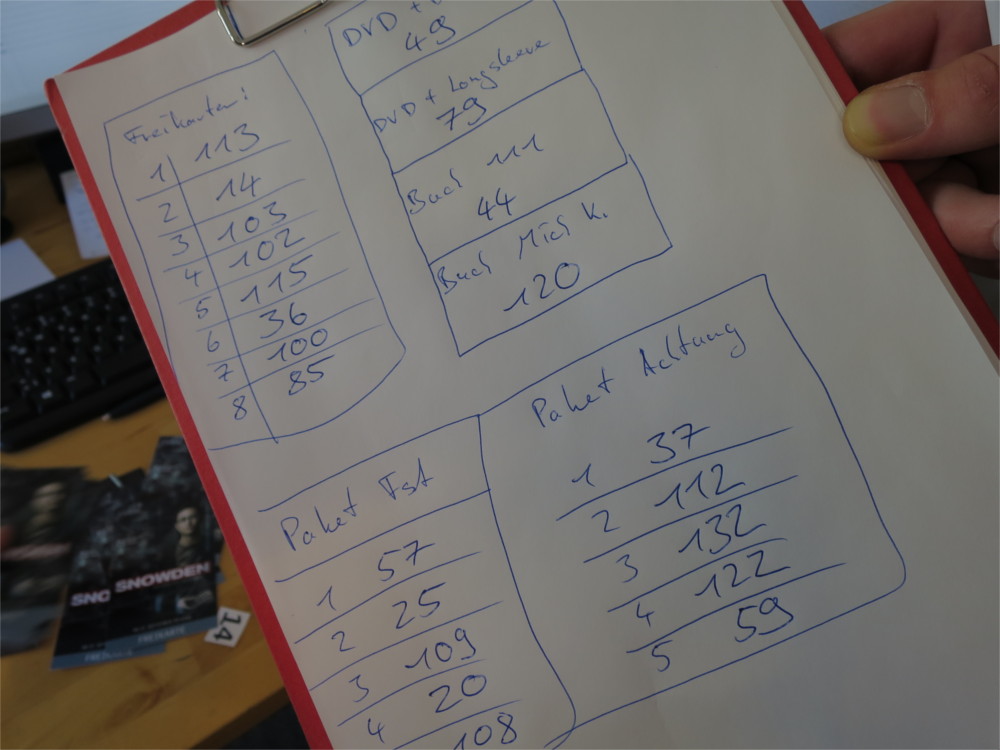 Freikarten:
1 113
2 14
3 103
4 102
5 115
6 36
7 100
8 85
DVD +
49
DVD + Longsleeve
79
Buch 111
44
Buch Mich K.
120
Paket Fst
1 57
2 25
3 109
4 20
108
Paket Achtung
1 37
2 112
3 132
4 122
5 59
SNO
SNOWDEN
FREIKARTE
14